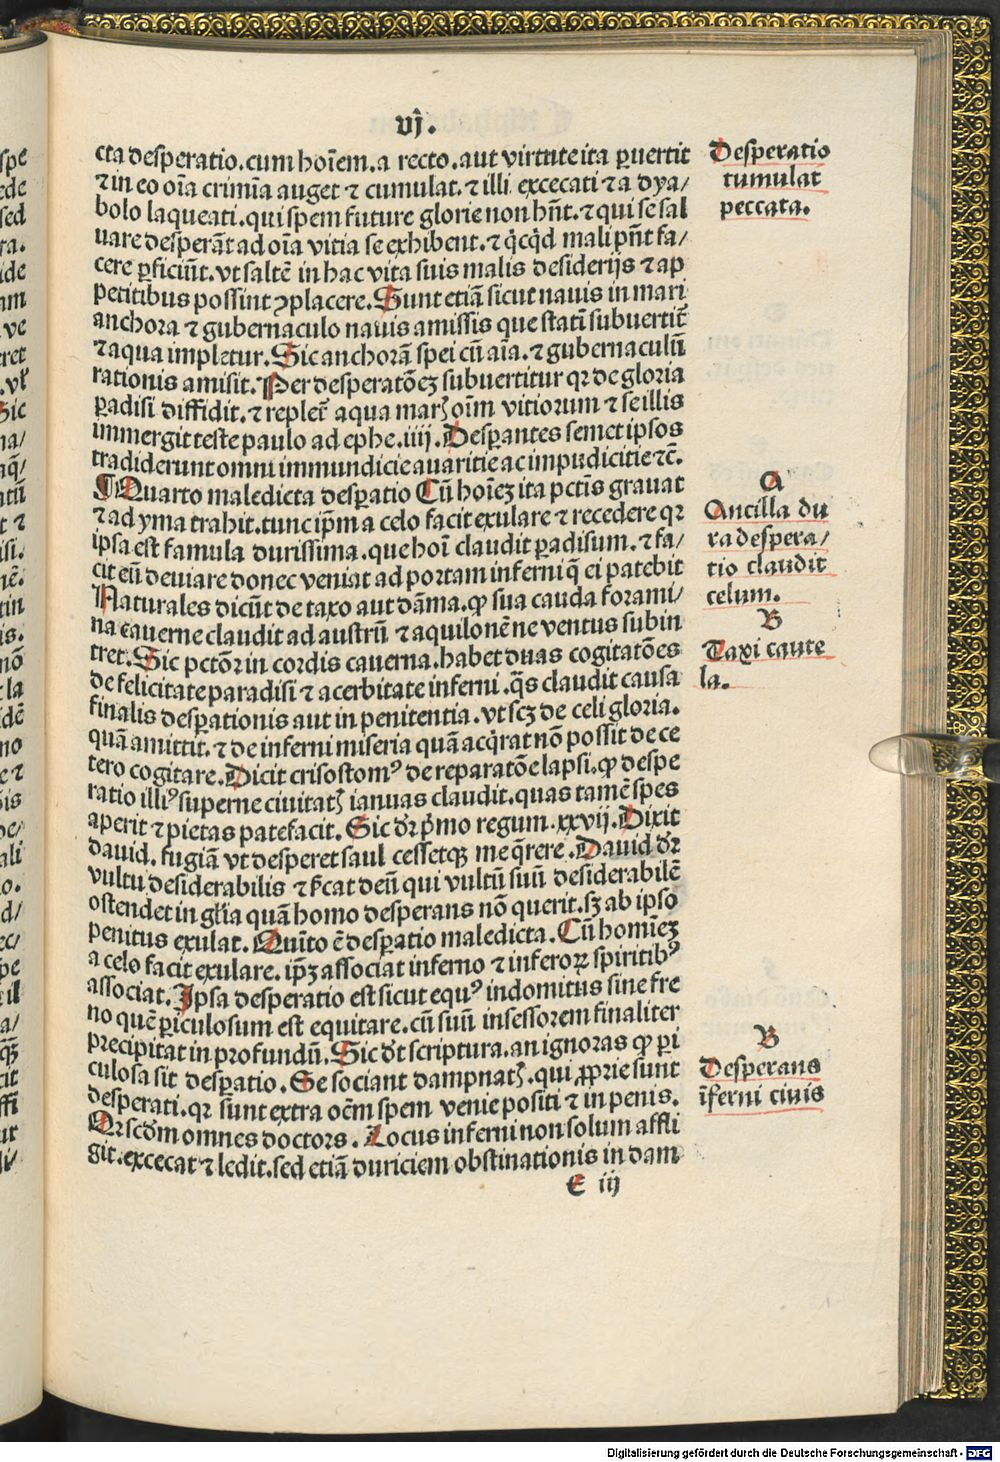 vj.
cta desperatio.cum hoiem.a recto.aut virtute ita puertit
⁊ in eo oia crimia auget ⁊ cumulat.⁊ illi excecati ⁊ a dya/
bolo laqueati.qui spem future glorie non hnt.⁊ qui se sal
uare desperāt ad oia vitia se exhibent.⁊ qcqd mali pnt fa/
cere pficiūt.vt saltē in hac vita suis malis desiderijs ⁊ ap
petitibus possint ꝯplacere.Sunt etiā sicut nauis in mari
anchora ⁊ gubernaculo nauis amissis que statī subuertit̄
⁊ aqua impletur.Sic anchorā spei cū aīa.⁊ gubernaculū
rationis amisit.Per desperatōeꝫ subuertitur qꝛ de gloria
ꝑadisi diffidit.⁊ replet̄ aqua marꝭ oīm vitiorum ⁊ se illis
immergit teste paulo ad ephe.iiij.Desꝑantes semet ipsos
tradiderunt omni immundicie auaritie ac impudicitie ⁊c̄.
¶ Quarto maledicta desꝑatio Cū hoīeꝫ ita pctis grauat
⁊ ad yma trahit.tunc ip̄m a celo facit exulare ⁊ recedere qꝛ
ipsa est famula durissima.que hoī claudit ꝑadisum.⁊ fa/
cit eū deuiare donec veniat ad portam inferni q̄ ei patebit
Naturales dicūt de taxo aut dāma.ꝙ sua cauda forami/
na cauerne claudit ad austrū ⁊ aquilonē ne ventus subin
tret.Sic pctōr in cordis cauerna.habet duas cogitatōes
de felicitate paradisi ⁊ acerbitate inferni.q̄s claudit causa
finalis desꝑationis aut in penitentia.vt scꝫ de celi gloria.
quā amittit.⁊ de inferni miseria quā acqrat nō possit de ce
tero cogitare.Dicit crisostomꝰ de reparatōe lapsi.ꝙ despe
ratio illiꝰ superne ciuitatꝭ ianuas claudit.quas tamē spes
aperit ⁊ pietas patefacit.Sic dr̄ pͥmo regum.xxvij.Dixit
dauid.fugiā vt desperet saul cessetqꝫ me q̄rere.Dauid dr̄
vultu desiderabilis ⁊ deū qui vultū suū desiderabilē
ostendet in gl̄ia quā homo desperans nō querit.sꝫ ab ipso
penitus exulat.Quīto ē desꝑatio maledicta.Cū homīeꝫ
a celo facit exulare.ip̄ꝫ associat inferno ⁊ inferoꝝ spiritibꝰ
associat.Ipsa desperatio est sicut equꝰ indomitus sine fre
no quē ꝑiculosum est equitare.cū suū insessorem finaliter
precipitat in profundū.Sic dt̄ scriptura.an ignoras ꝙ ꝑi
culosa sit desꝑatio.Se sociant dampnatꝭ.qui ꝓprie sunt
desperati.qꝛ sunt extra oēm spem venie positi ⁊ in penis.
Qꝛ scdm omnes doctors.Locus inferni non solum affli
git.excecat ⁊ ledit.sed etiā duriciem obstinationis in dam
E iij
Desperatio
tumulat
peccata.
A
Ancilla du
ra despera/
tio claudit
celum.
B
Taxi caute
la.
B
Desperans
īferni ciuis
Digitalisierung gefördert durch die Deutsche Forschungsgemeinschaft - DFG